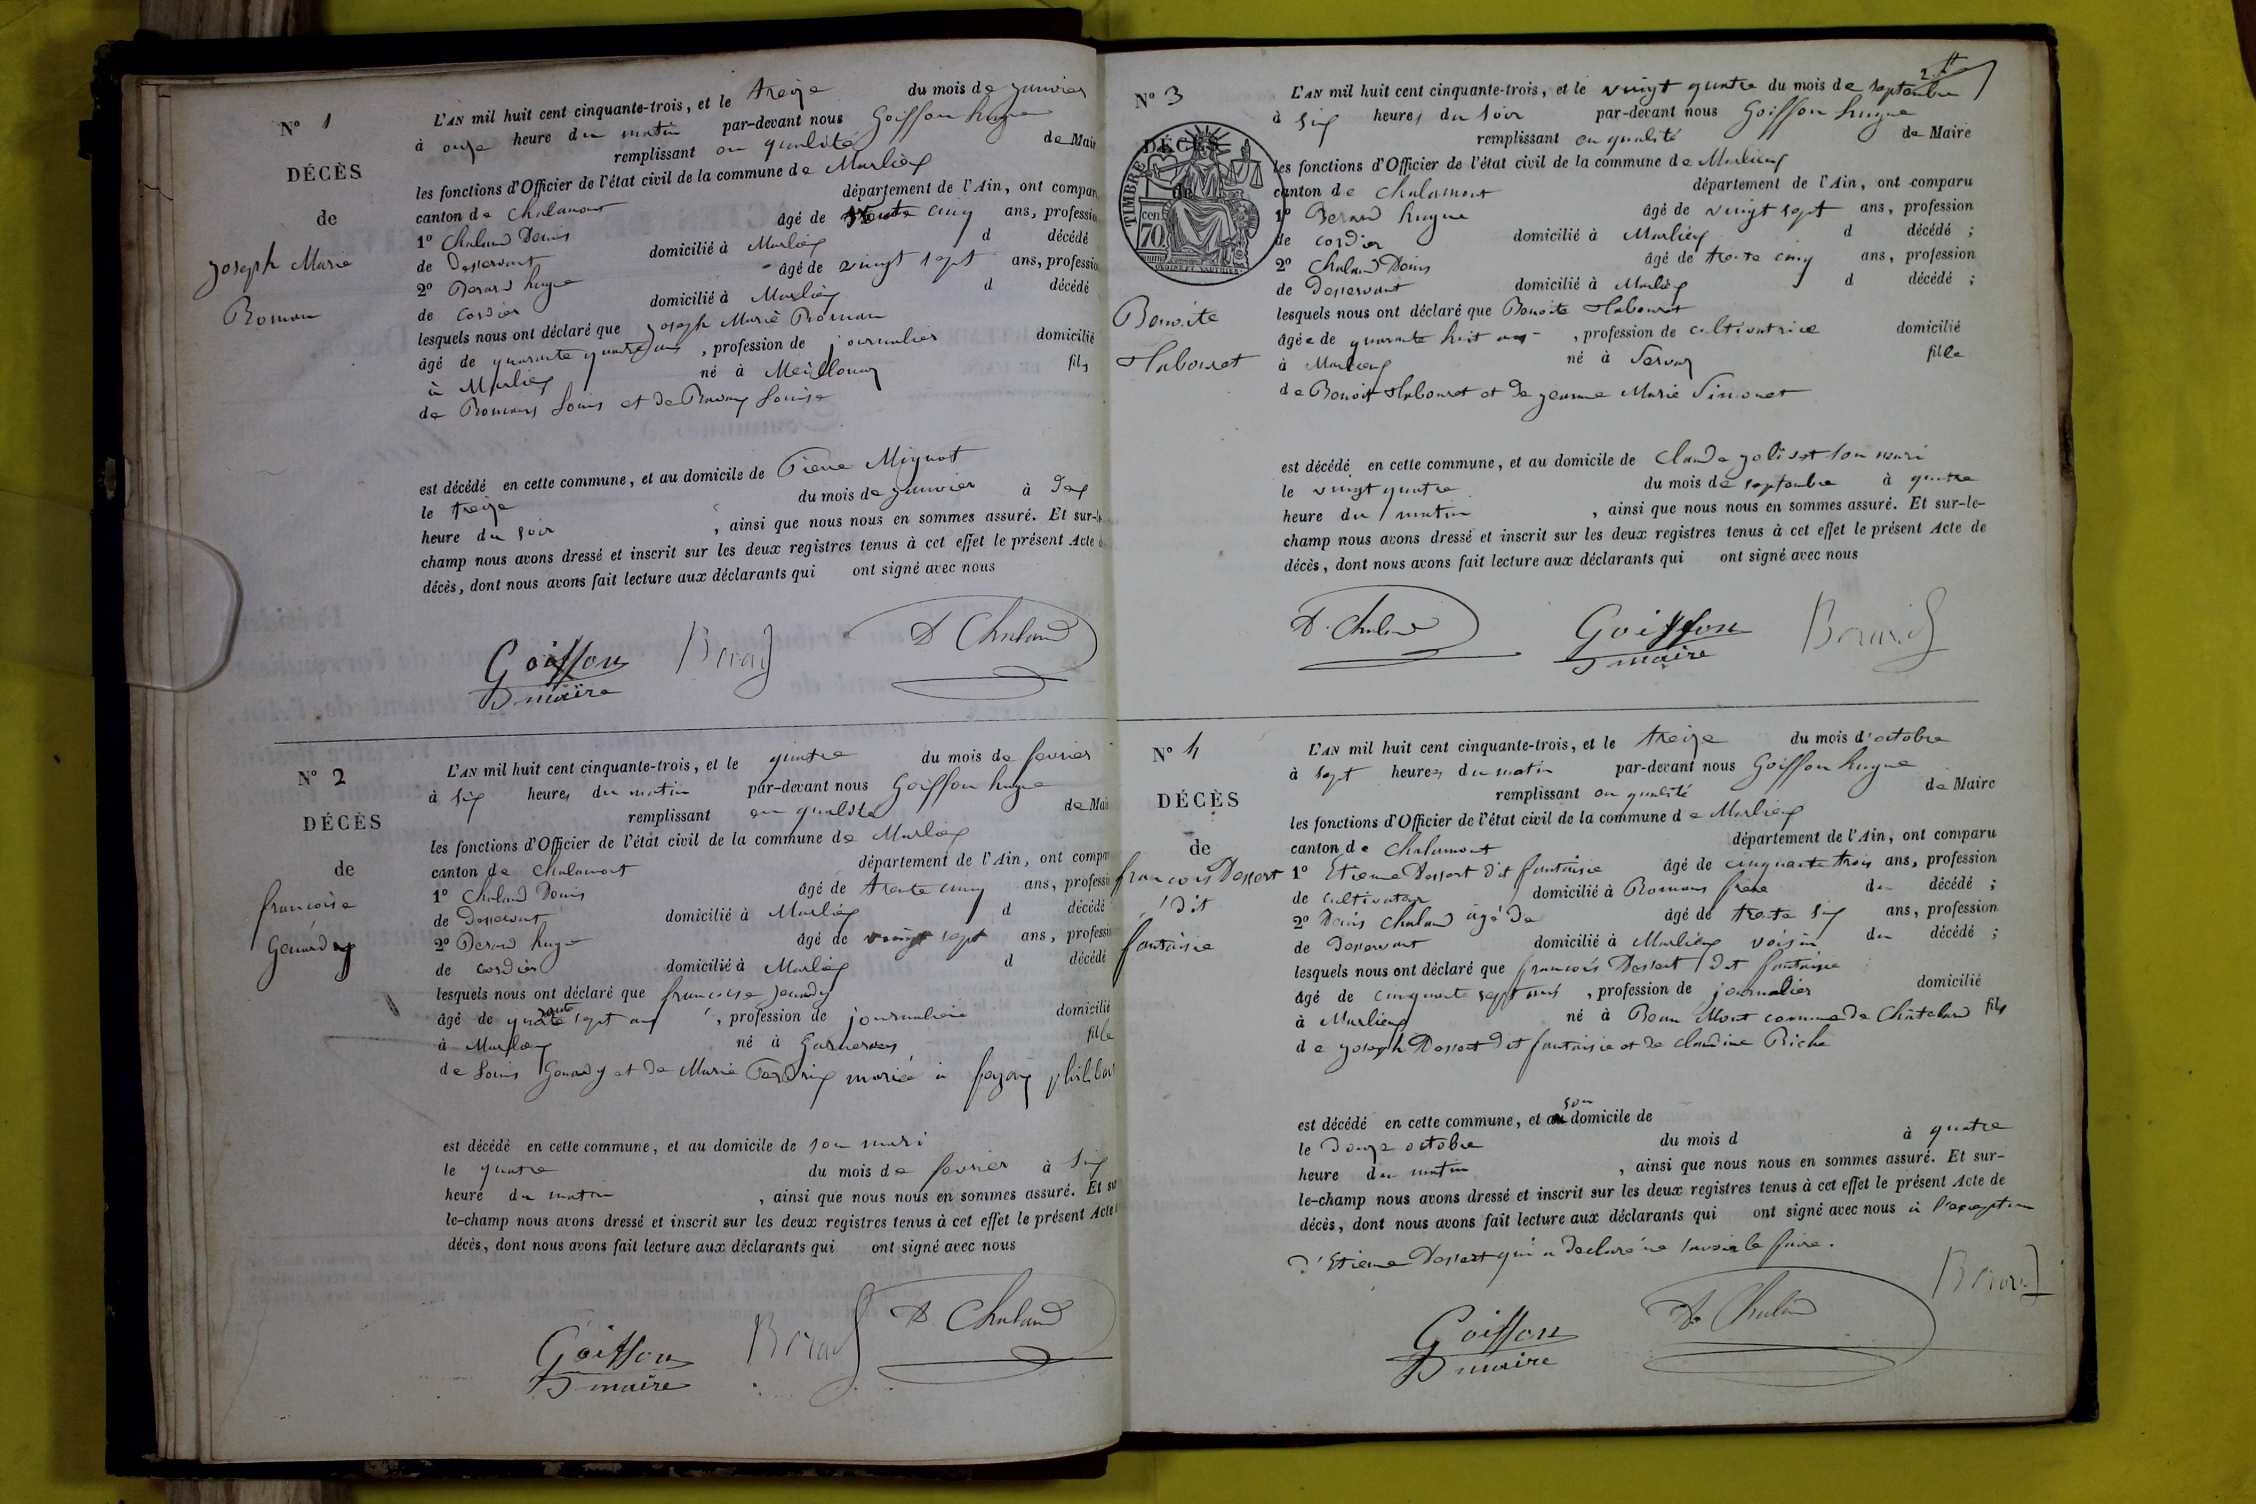 N° 1
DÉCÈS
de
joseph Marie
Roman
L'AN mil huit cent cinquante-trois, et le treize du mois de janvier
à onze heure du matin par-devant nous Goiffon hugue
remplissant en qualité de Mair
les fonctions d'Officier de l'état civil de la commune de Marlieux
canton de chalamont département de l'Ain, ont compar
1° Chaland Denis âgé de trente cinq ans, professio
de desservant domicilié à Marlieux d décédé
2° Berard hugue âgé de vingt sept ans, professio
de cordier domicilié à Marlieux d décédé
lesquels nous ont déclaré que joseph Marie Roman
âgé de quarante quatre ans, profession de journalier domicilié
à Marlieux né à Meillonay fils
de Romans Louis et de Louise
est décédé en cette commune, et au domicile de Pierre Mignot
le treize du mois de janvier à dex
heure du soir, ainsi que nous nous en sommes assuré. Et sur-le
champ nous avons dressé et inscrit sur les deux registres tenus à cet effet le présent Acte d
décès, dont nous avons fait lecture aux déclarants qui ont signé avec nous
Goiffon Berard D Chaland
maire
N° 2
DÉCÈS
de
francoise
Genardy
L'AN mil huit cent cinquante-trois, et le quatre du mois de fevrier
à six heures du matin par-devant nous Goiffon hugue
remplissant en qualité de Mair
les fonctions d'Officier de l'état civil de la commune de Marlieux
canton de Chalamont département de l'Ain, ont compar
1° Chaland Denis âgé de trente cinq ans, professio
de desservant domicilié à Marlieux d décédé
2° Berard hugue âgé de vingt sept ans, professio
de cordier domicilié à Marlieux d décédé
lesquels nous ont déclaré que francoise jenardy
âgé de quarante sept ans, profession de journaliere domicilié
à Marlieux né à fille
de Louis Genardy et de Marie Perdrix mariée à philibert
est décédé en cette commune, et au domicile de son mari
le quatre du mois de fevrier à six
heure du matin, ainsi que nous nous en sommes assuré. Et sur
le-champ nous avons dressé et inscrit sur les deux registres tenus à cet effet le présent Acte
décès, dont nous avons fait lecture aux déclarants qui ont signé avec nous
Goiffon Berard D Chaland
maire
2
N° 3
DÉCÈS
de
TIMBRE
cent.
70
Benoite
Habouret
L'AN mil huit cent cinquante-trois, et le vingt quatre du mois de septembre
à six heures du soir par-devant nous Goiffon hugue
remplissant en qualité de Maire
les fonctions d'Officier de l'état civil de la commune de Marlieux
canton de chalamont département de l'Ain, ont comparu
1° Berard hugue âgé de vingt sept ans, profession
de cordier domicilié à Marlieux d décédé ;
2° Chaland Denis âgé de trente cinq ans, profession
de desservant domicilié à Marlieux d décédé ;
lesquels nous ont déclaré que Benoite Habouret
âgée de quarante huit ans, profession de cultivatrice domicilié
à Marlieux né à Servas fille
de Benoit Habouret et de jeanne Marie Simonet
est décédé en cette commune, et au domicile de claude jolivet son mari
le vingt quatre du mois de septembre à quatre
heure du matin, ainsi que nous nous en sommes assuré. Et sur-le-
champ nous avons dressé et inscrit sur les deux registres tenus à cet effet le présent Acte de
décès, dont nous avons fait lecture aux déclarants qui ont signé avec nous
D. Chaland Goiffon Berard
maire
N° 4
DÉCÈS
de
francois Dessert
dit
fantaisie
L'AN mil huit cent cinquante-trois, et le treize du mois d'octobre
à sept heures du matin par-devant nous Goiffon hugue
remplissant en qualité de Maire
les fonctions d'Officier de l'état civil de la commune de Marlieux
canton de Chalamont département de l'Ain, ont comparu
1° Etienne Dessert dit fantaisie âgé de cinquante trois ans, profession
de cultivateur domicilié à Romans frere du décédé ;
2° Denis chaland âgé de âgé de trente six ans, profession
de desservant domicilié à Marlieux voisin du décédé ;
lesquels nous ont déclaré que francois Dessert dit fantaisie
âgé de cinquante sept ans, profession de journalier domicilié
à Marlieux né à Beau Mont commune de Châtelard fils
de joseph Dessert dit fantaisie et de claudine Riche
est décédé en cette commune, et au son domicile de
le douze octobre du mois d à quatre
heure du matin, ainsi que nous nous en sommes assuré. Et sur-
le-champ nous avons dressé et inscrit sur les deux registres tenus à cet effet le présent Acte de
décès, dont nous avons fait lecture aux déclarants qui ont signé avec nous à l'exception
d'Etienne Dessert qui a declaré ne savoir le faire.
Goiffon D. Chaland Berard
maire